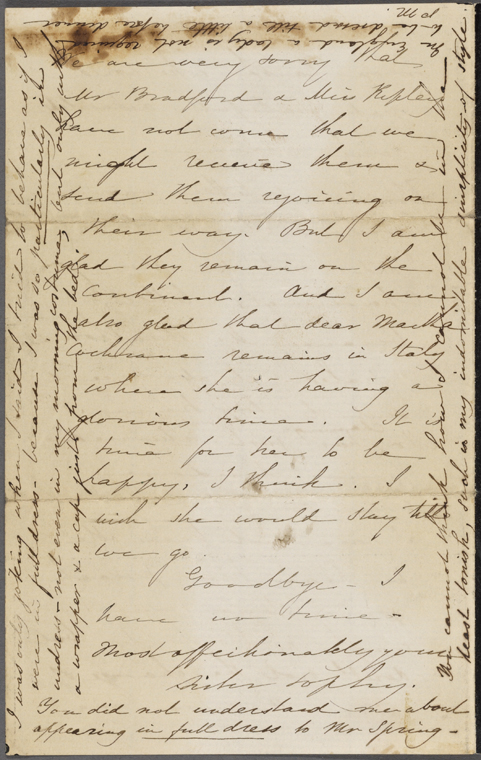 We are very sorry that
Mr Bradford & Miss Ripley
have not come that we
might receive them &
send them rejoicing on
their way. But I am
glad they remain on the
Continent. And I am
also glad that dear Martha
Cochrane remains in Italy
where she is having a
glorious time. It is
time for her to be
happy, I think. I
wish she would stay till
we go.
Goodbye - I
have no time -
Most affectionately yours
sister Sophy.
You did not understand me about
appearing in full dress to Mr Spring -
I was only joking when I said I tried to behave as if I
were in full dress - because I was so particularly in
undress - not even in my morning costume, but only with
a wrapper & a cap just from the bed.
You cannot think how I cannot in the
least tonish, such is my indomitable simplicity of style
In England a lady is not required
to be dressed till a little before dinner
P.M.